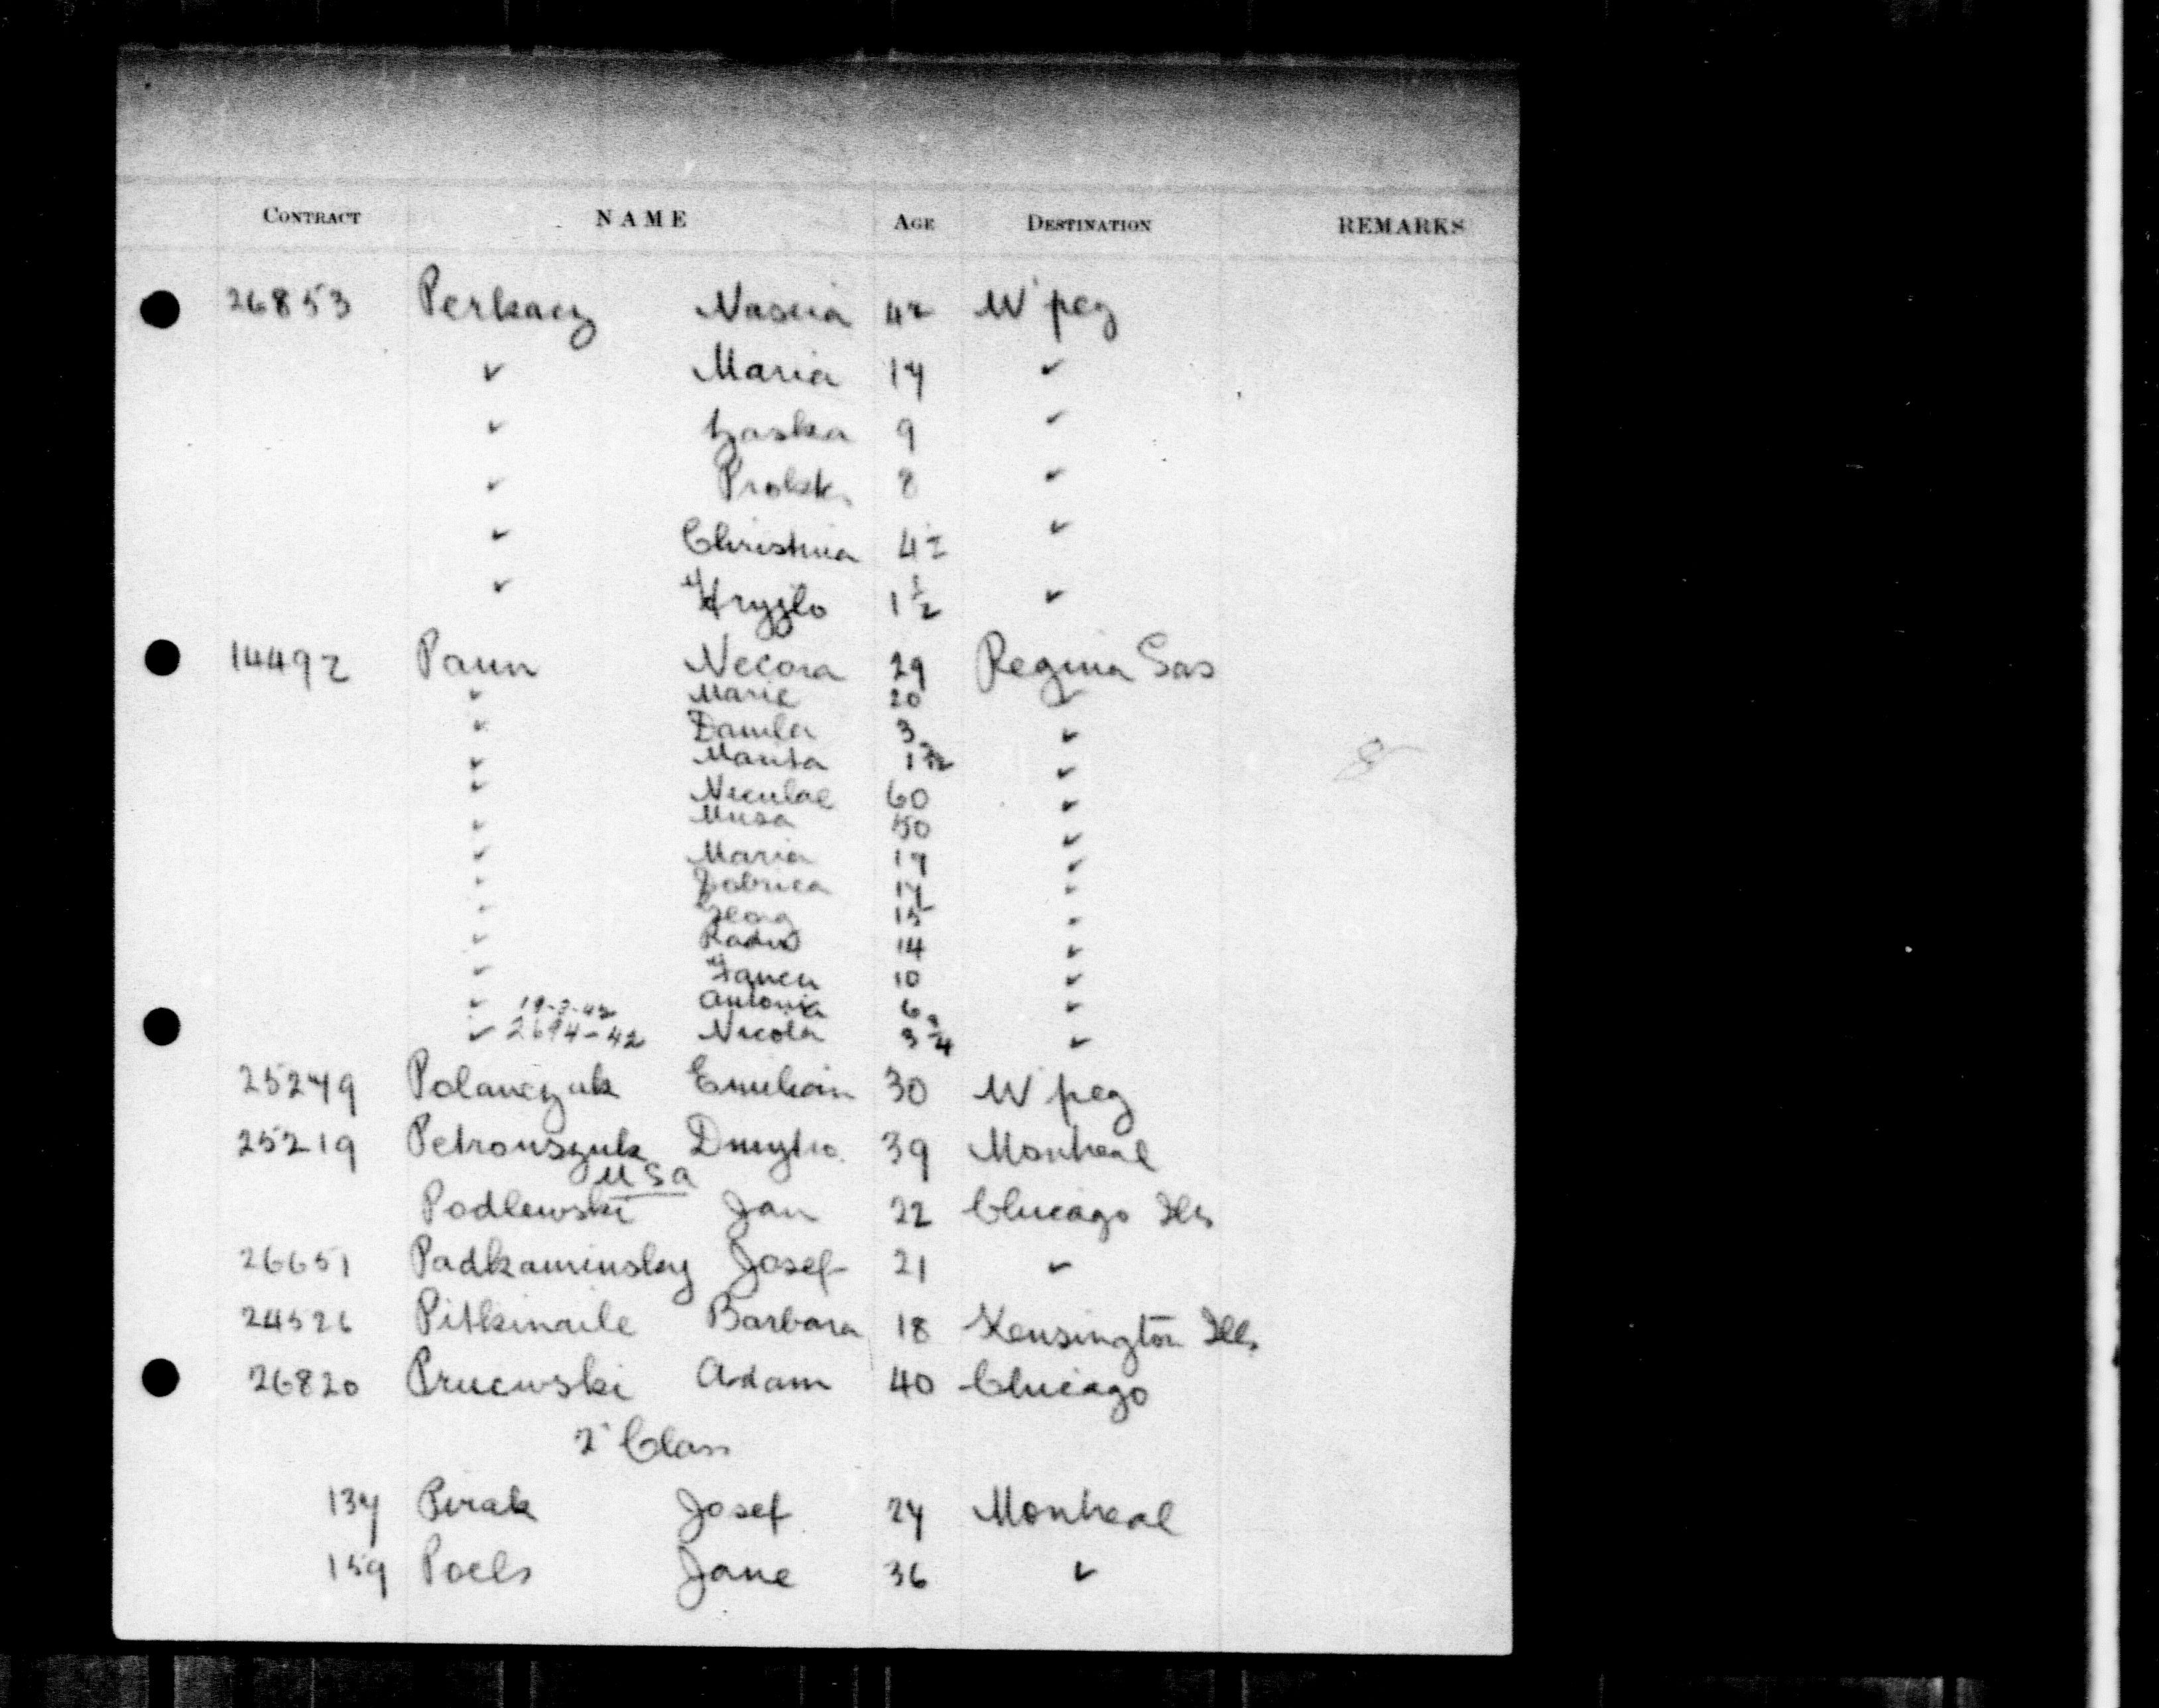 CONTRACT NAME AGE DESTINATION REMARKS
26853 Perkacz Nascia 42 W'peg
✓ Maria 14 ✓
✓ 9 ✓
✓ 8 ✓
✓ Christina ✓
✓ 1 1/2 ✓
14492 Paun Necora 29 Regina Sas
✓ Marie 20 ✓
✓ 3 ✓
✓ Marita ✓
✓ Niculae 60 ✓
✓ Musa 50 ✓
✓ Maria ✓
✓ ✓
✓ Georg 15 ✓
✓ Radu 14 ✓
✓ 10 ✓
✓ Antonia 6 ✓
✓ 2694-42 Nicola ✓
25249 Polanczuk Emilian 30 W'peg
25219 Petrouszuk Dmytro 39 Montreal
USA
Podlewski Jan 22 Chicago Ills
26651 Padkaminsky Josef 21 ✓
24526 Barbara 18 Kensington Ills
26820 Prucwski Adam 40 Chicago
2 Class
134 Pirak Josef 24 Montreal
159 Poels Jane 36 ✓